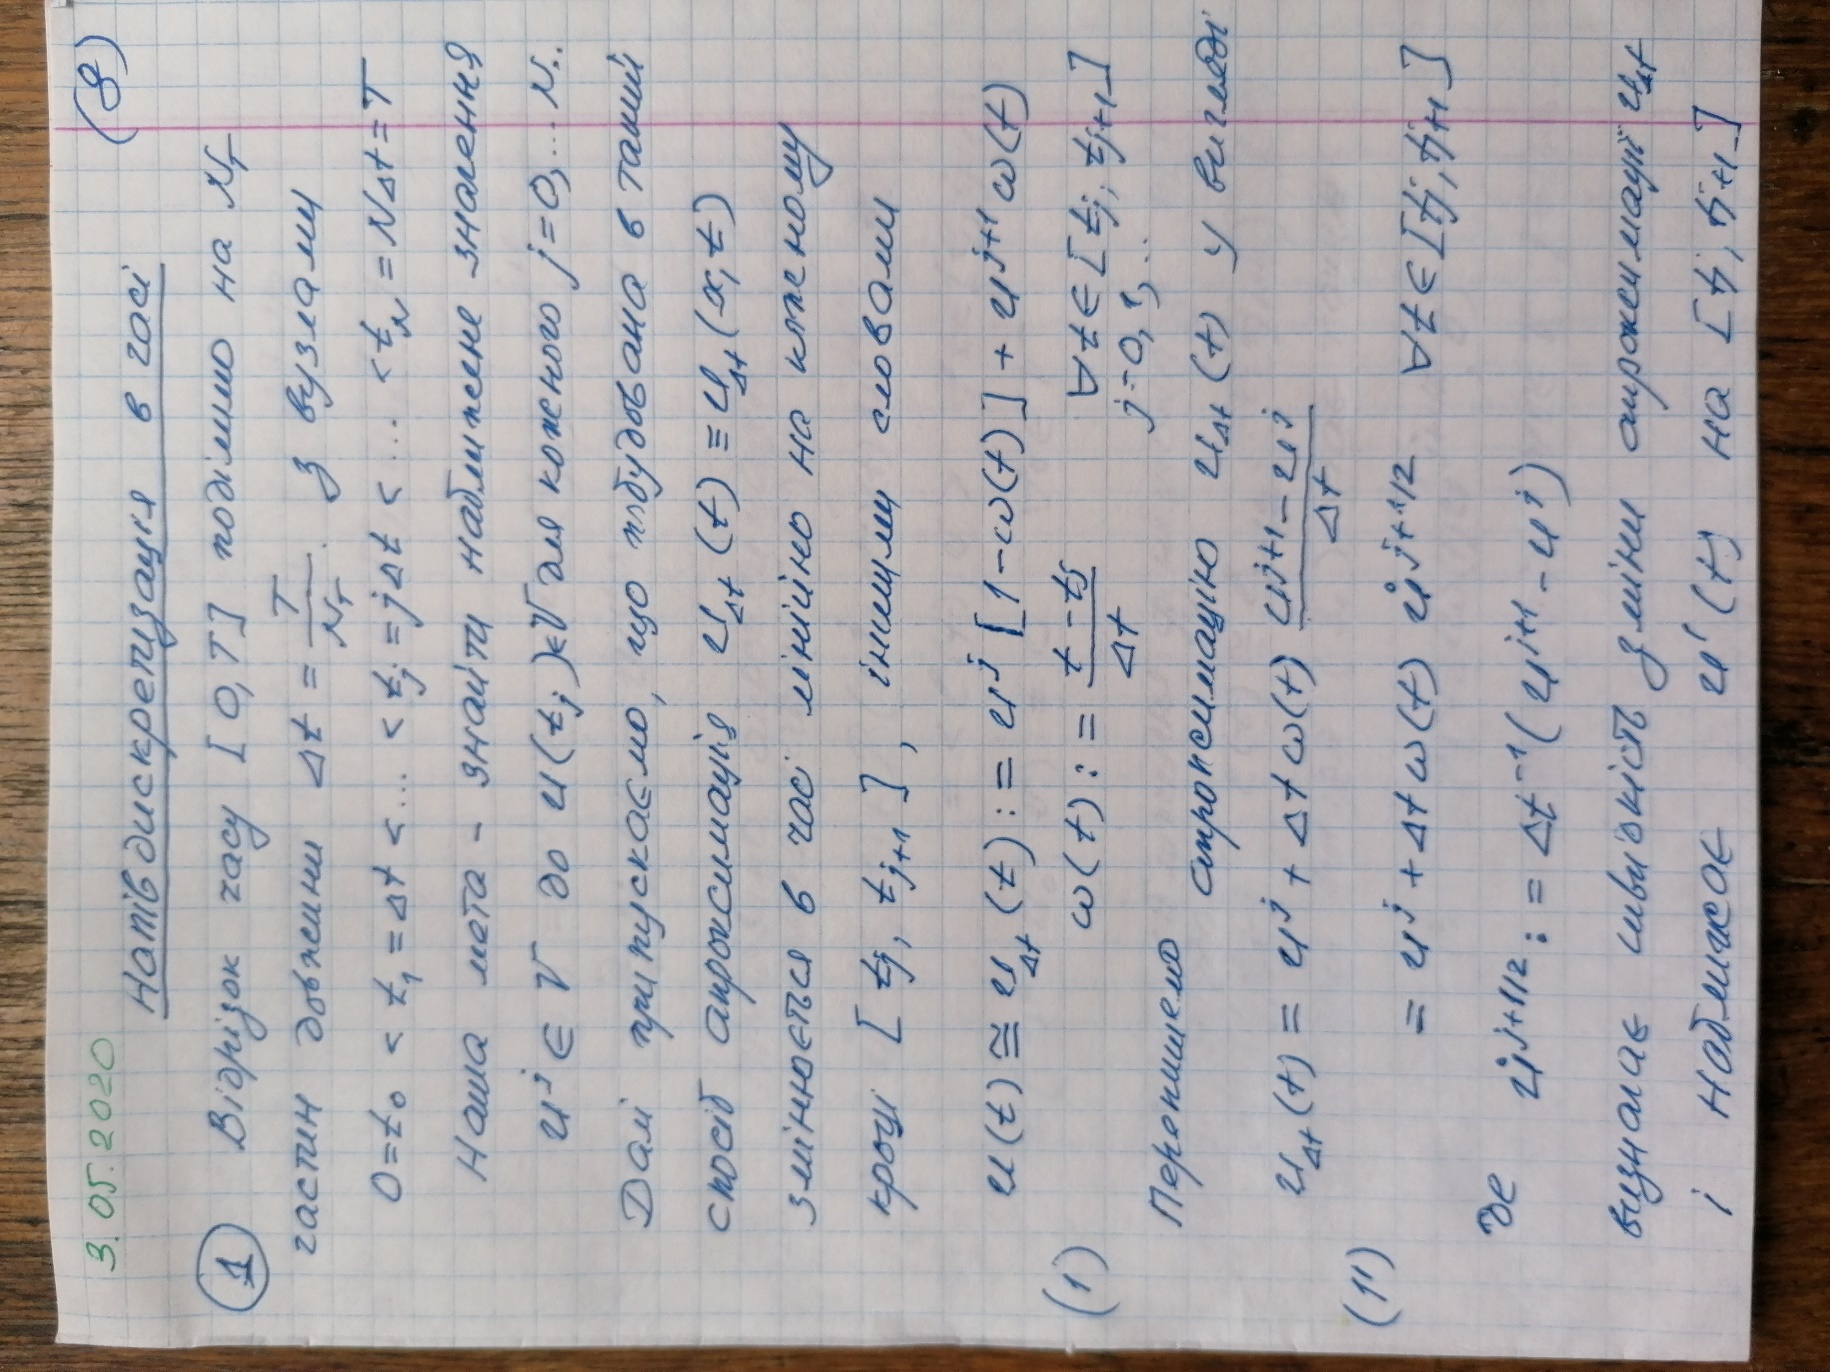 3.05.2020
(8)
Напівдискретизація в часі
① Відрізок часу [0,T] поділимо на N_T
частин довжини Δt = T/N_T. з вузлами
0=t₀ < t₁=Δt <... < t_j=jΔt <... <t_N=NΔt=T
Наша мета - знайти наближене значення
u^j ∈ V до u(t_j)∈V для кожного j=0,...N..
Далі припускаємо, що побудована в такий
спосіб апроксимація u_Δt(t) ≡ u_Δt(x,t)
змінюється в часі лінійно на кожному
кроці [t_j, t_{j+1}], іншими словами
u(t) ≅ u_Δt(t) := u^j[1-ω(t)] + u^{j+1}ω(t)
(1) ω(t) := (t-t_j)/Δt ∀t∈[t_j; t_{j+1}]
j=0,1,..
Перепишемо апроксимацію u_Δt(t) у вигляді
u_Δt(t) = u^j + Δtω(t) (u^{j+1}-u^j)/Δt
(1') = u^j + Δtω(t) u̇^{j+1/2} ∀t∈[t_j; t_{j+1}]
де u̇^{j+1/2} := Δt^{-1}(u^{j+1}-u^j)
визначає швидкість зміни апроксимації u_Δt
і наближає u'(t) на [t_j, t_{j+1}]